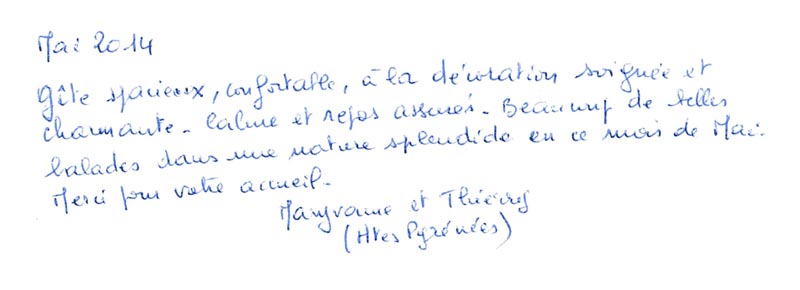 Mai 2014
Gîte spacieux, confortable, à la décoration soignée et
charmante. Calme et repos assurés. Beaucoup de belles
balades dans une nature splendide en ce mois de Mai.
Merci pour votre accueil.
Maryvonne et Thierry
(Htes Pyrénées)